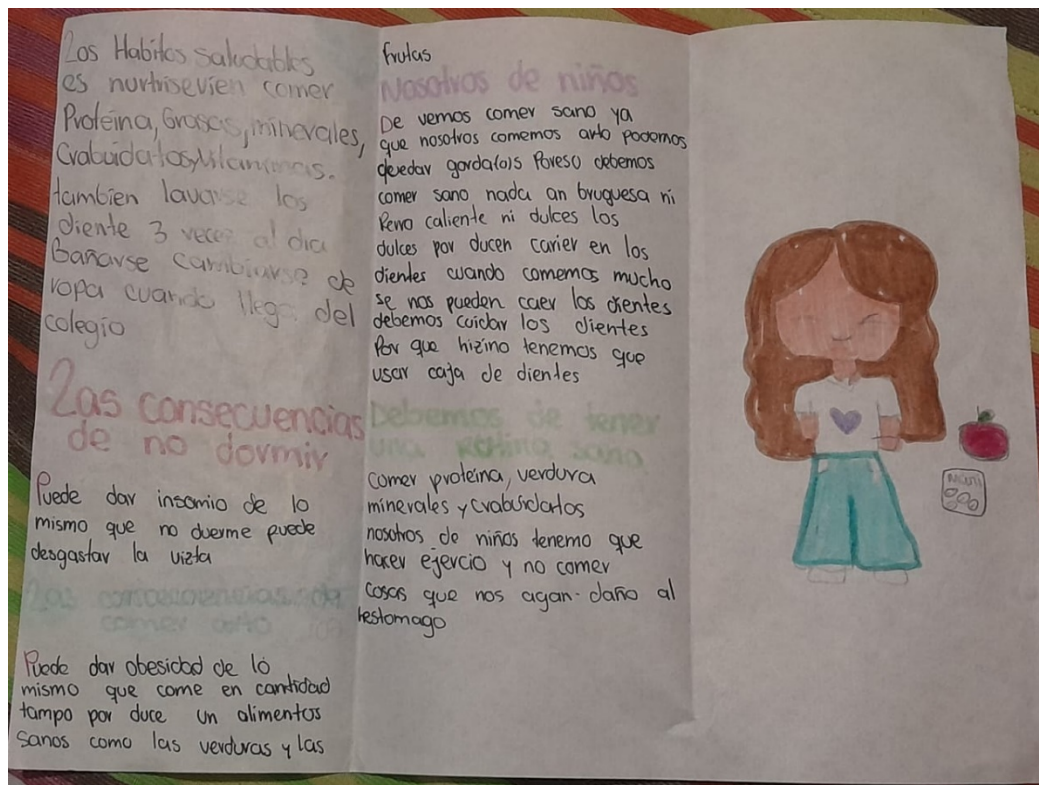 Los Habitos saludables
es nurtrisevien comer
Proteína, Grasas, minerales,
Crabuidatos,Vitaminas.
tambien lavarse los
diente 3 veces al dia
Bañarse cambiarse de
ropa cuando llego del
colegio
Las consecuencias
de no dormir
Puede dar insomio de lo
mismo que no duerme puede
desgastar la vizta
Las consecuencias de
comer
Puede dar obesidad de lo
mismo que come en cantidad
tampo por duce un alimentos
Sanos como las verduras y las
frutas
Nosotros de niños
De vemos comer sano ya
que nosotros comemos arto podemos
quedar gorda(o)s Poreso debemos
comer sano nada an bruguesa ni
Perro caliente ni dulces los
dulces por ducen carier en los
dientes cuando comemos mucho
se nos pueden caer los dientes
debemos cuidar los dientes
Por que hizino tenemos que
usar caja de dientes
Debemos de tener
una rutina sana
Comer proteína, verdura
minerales y crabuidartos
nosotros de niños tenemo que
hacer ejercio y no comer
cosas que nos agan daño al
hestomago
Mani